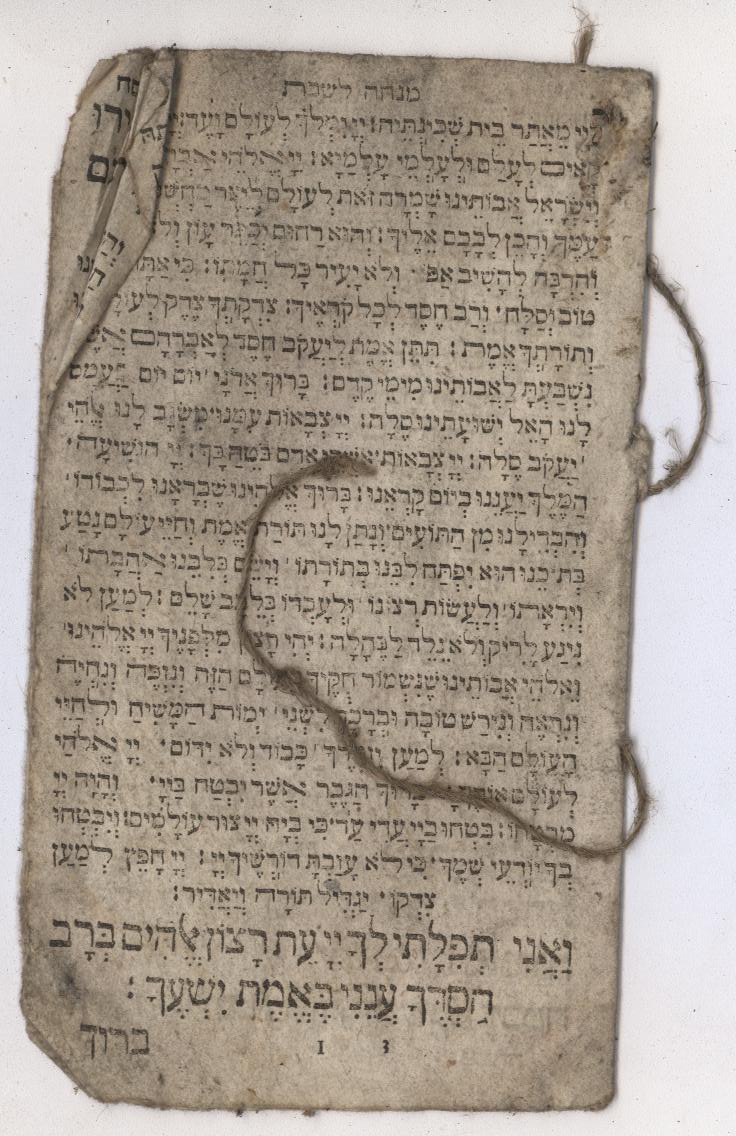 מנחה לשבת
מֵאֲתַר בֵּית שְׁכִינְתֵּיהּ: יְיָ יִמְלֹךְ לְעוֹלָם וָעֶד:
קָאֵים לְעָלַם וּלְעָלְמֵי עָלְמַיָּא: יְיָ אֱלֹהֵי
וְיִשְׂרָאֵל אֲבוֹתֵינוּ שָׁמְרָה זֹאת לְעוֹלָם לְיֵצֶר
עַמֶּךָ וְהָכֵן לְבָבָם אֵלֶיךָ: וְהוּא רַחוּם יְכַפֵּר עָוֹן
וְהִרְבָּה לְהָשִׁיב אַפּוֹ ' וְלֹא יָעִיר כָּל חֲמָתוֹ: כִּי אַתָּה
טוֹב וְסַלָּח ' וְרַב חֶסֶד לְכָל קֹרְאֶיךָ: צִדְקָתְךָ צֶדֶק
וְתוֹרָתְךָ אֱמֶת: תִּתֵּן אֱמֶת לְיַעֲקֹב חֶסֶד לְאַבְרָהָם
נִשְׁבַּעְתָּ לַאֲבוֹתֵינוּ מִימֵי קֶדֶם: בָּרוּךְ אֲדֹנָי ' יוֹם יוֹם יַעֲמָס
לָנוּ הָאֵל יְשׁוּעָתֵינוּ סֶלָה: יְיָ צְבָאוֹת עִמָּנוּ מִשְׂגָּב לָנוּ אֱלֹהֵי
יַעֲקֹב סֶלָה: יְיָ צְבָאוֹת ' אָדָם בֹּטֵחַ בָּךְ: יְיָ הוֹשִׁיעָה '
הַמֶּלֶךְ יַעֲנֵנוּ בְיוֹם קָרְאֵנוּ: בָּרוּךְ אֱלֹהֵינוּ שֶׁבְּרָאָנוּ לִכְבוֹדוֹ '
וְהִבְדִּילָנוּ מִן הַתּוֹעִים ' וְנָתַן לָנוּ תּוֹרַת אֱמֶת וְחַיֵּי עוֹלָם נָטַע
בְּתוֹכֵנוּ הוּא יִפְתַּח לִבֵּנוּ בְּתוֹרָתוֹ ' וְיָשֵׂם בְּלִבֵּנוּ אַהֲבָתוֹ '
וְיִרְאָתוֹ ' וְלַעֲשׂוֹת רְצוֹנוֹ ' וּלְעָבְדוֹ שָׁלֵם: לְמַעַן לֹא
נִיגַע לָרִיק וְלֹא נֵלֵד לַבֶּהָלָה: יְהִי רָצוֹן מִלְּפָנֶיךָ יְיָ אֱלֹהֵינוּ '
וֵאלֹהֵי אֲבוֹתֵינוּ שֶׁנִּשְׁמוֹר חֻקֶּיךָ הַזֶּה וְנִזְכֶּה וְנִחְיֶה
וְנִרְאֶה וְנִירַשׁ טוֹבָה וּבְרָכָה לִשְׁנֵי ' יְמוֹת הַמָּשִׁיחַ וּלְחַיֵּי
הָעוֹלָם הַבָּא: לְמַעַן כָּבוֹד וְלֹא יִדּוֹם ' יְיָ אֱלֹהַי
לְעוֹלָם הַגֶּבֶר אֲשֶׁר יִבְטַח בַּיְיָ ' וְהָיָה יְיָ
מִבְטַחוֹ: בִּטְחוּ בַיְיָ עֲדֵי עַד כִּי בְיָהּ יְיָ צוּר עוֹלָמִים: וְיִבְטְחוּ
בְךָ יוֹדְעֵי שְׁמֶךָ ' כִּי לֹא עָזַבְתָּ דוֹרְשֶׁיךָ יְיָ: יְיָ חָפֵץ לְמַעַן
צִדְקוֹ ' יַגְדִּיל תּוֹרָה וְיַאְדִּיר:
וַאֲנִי תְפִלָּתִי לְךָ יְיָ עֵת רָצוֹן אֱלֹהִים בְּרָב
חַסְדֶּךָ עֲנֵנִי בֶּאֱמֶת יִשְׁעֶךָ:
1 3
ברוך